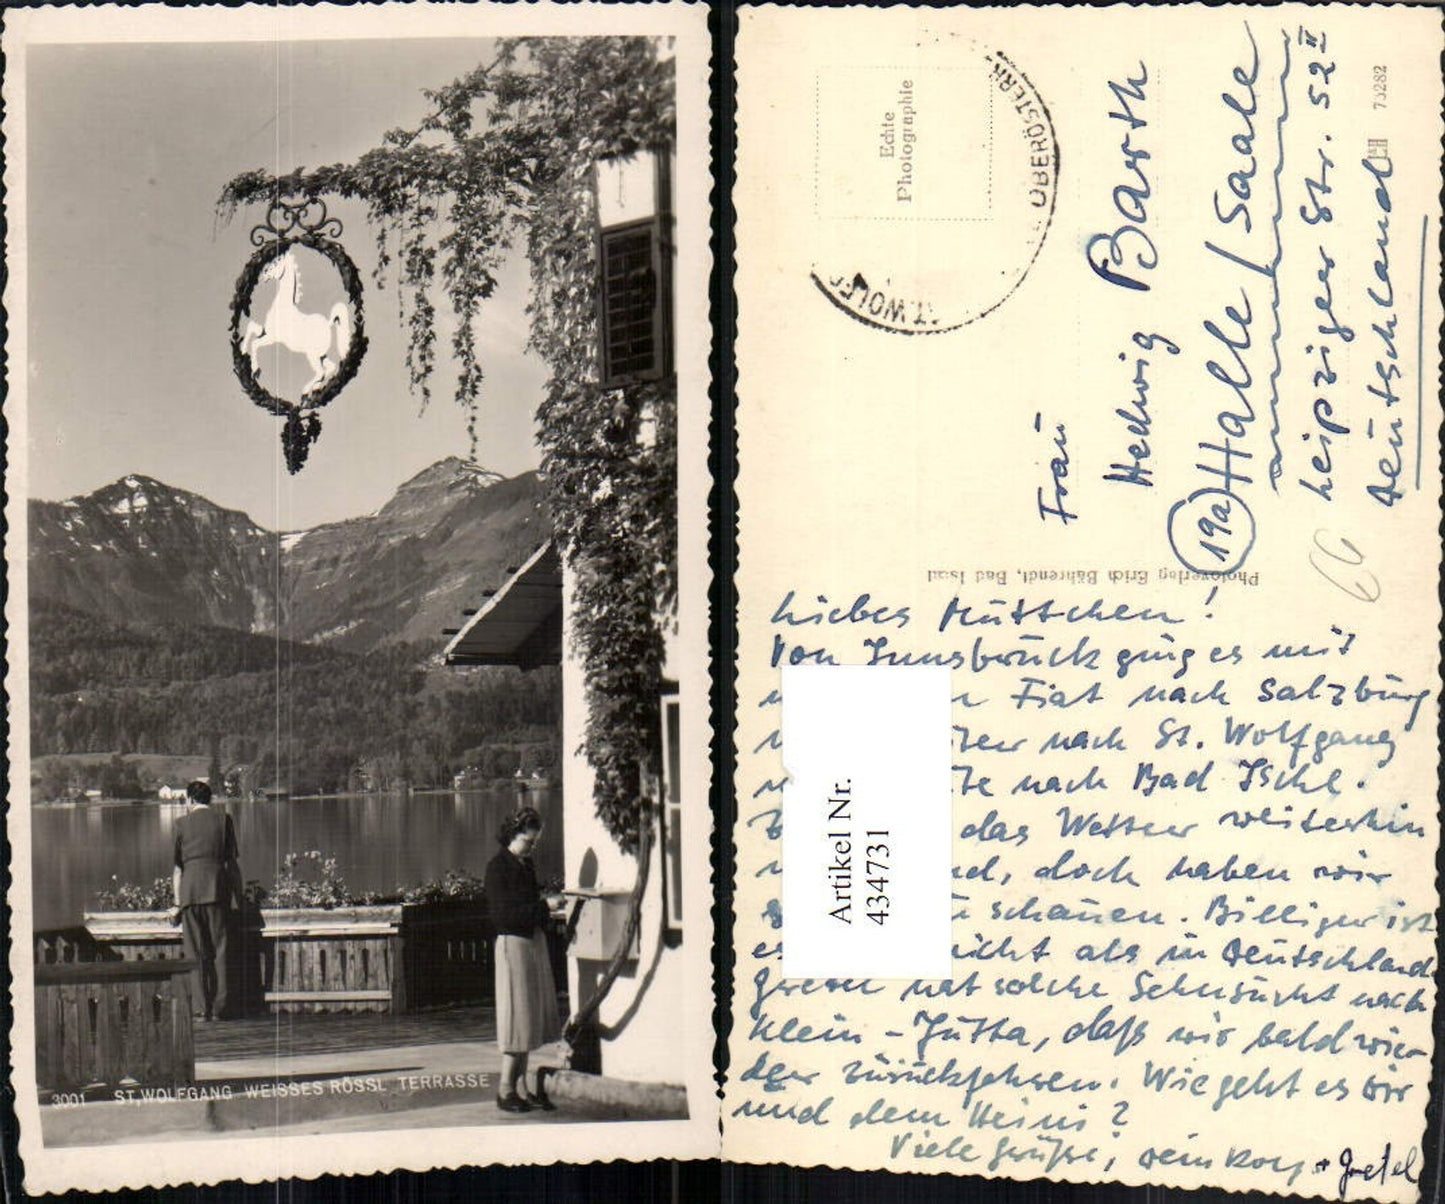 3001 ST, WOLFGANG WEISSES RÖSSL TERRASSE
Echte
Photographie
ST. WOLFG
OBERÖSTERR
75282
Photoverlag Erich Bährendt, Bad Ischl
Frau
Hedwig Barth
19a Halle / Saale
Leipziger Str. 52 II
Deutschland
66
Liebes Muttchen!
Von Innsbruck ging es mit
Fiat nach Salzburg
nach St. Wolfgang
nach Bad Ischl.
das Wetter weiterhin
doch haben wir
schauen. Billiger ist
es nicht als in Deutschland
Gretel hat solche Sehnsucht nach
Klein-Jutta, daß wir bald wie-
der zurückfahren. Wie geht es Dir
und dem Heini?
Viele Grüße, Dein + Gretel
Artikel Nr.
434731